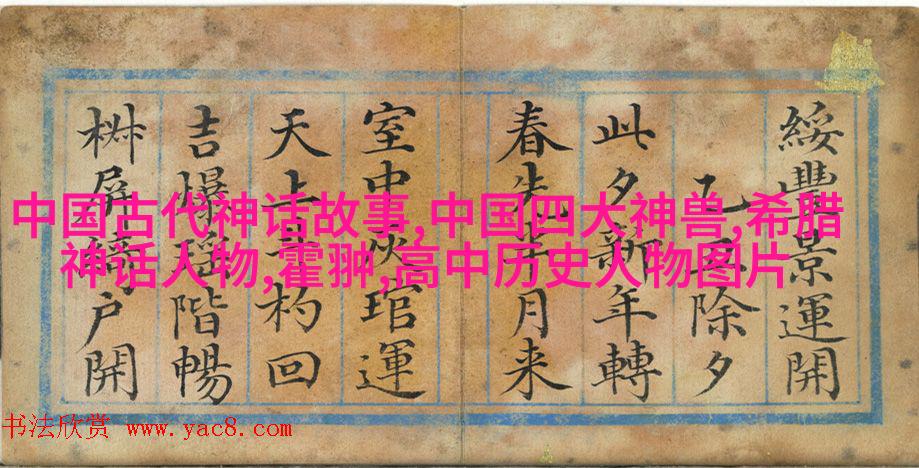 綏豐景運開
乙丑除夕
此夕新年轉
春先半月来
室中灰琯運
天上斗杓回
吉爆瑶階暢
屏戶開
中国古代神话故事,中国四大神兽,希腊
神话人物,霍翀,高中历史人物图片
书法欣赏 www.yac8.com